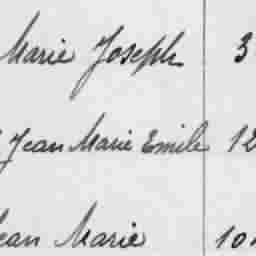 Marie Joseph 3
Jean Marie Emile 12
Jean Marie 10